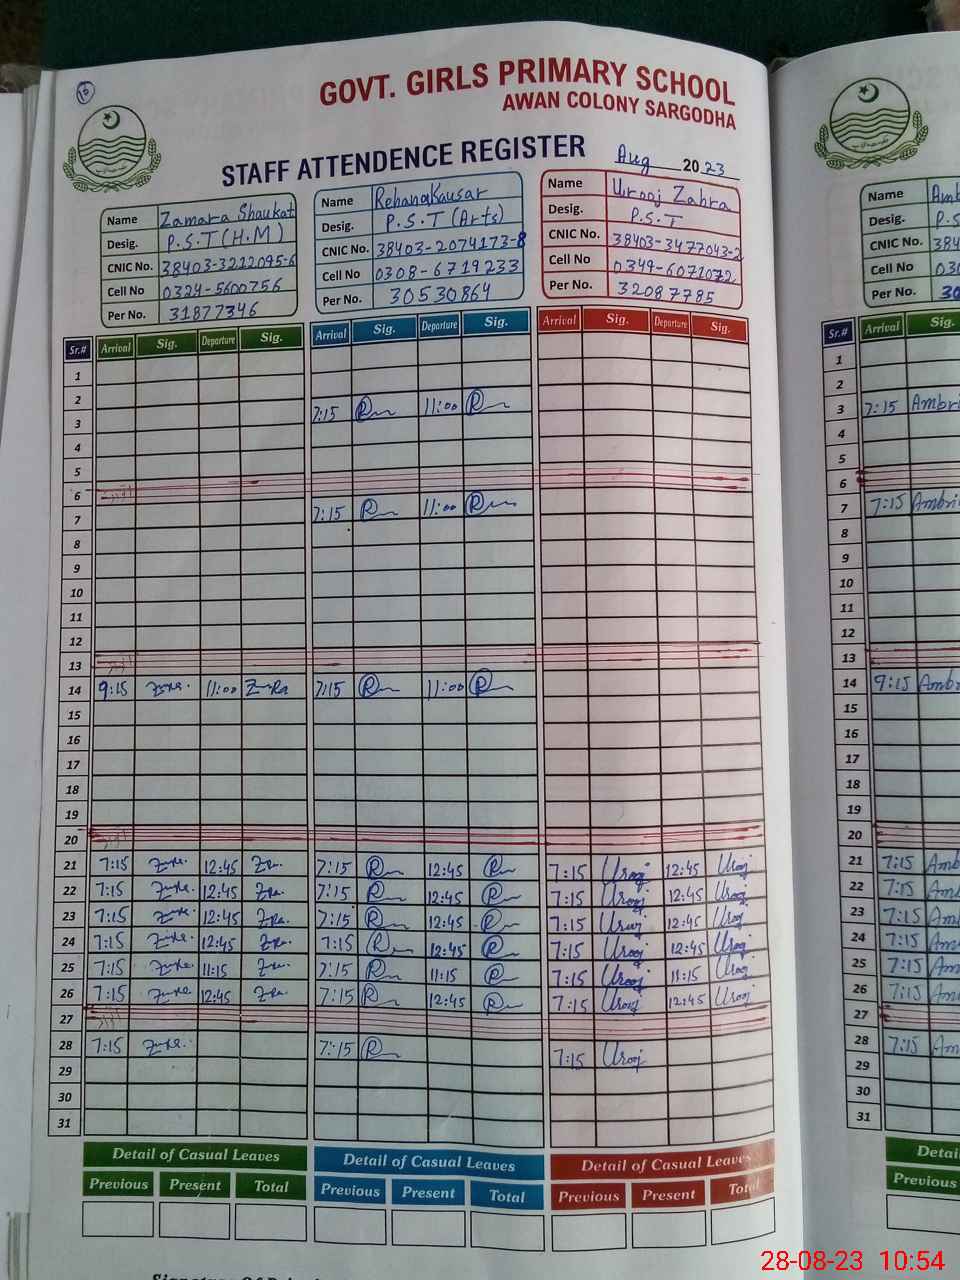 10
GOVT. GIRLS PRIMARY SCHOOL
AWAN COLONY SARGODHA
STAFF ATTENDENCE REGISTER Aug 2023
Name Zamara Shaukat
Desig. P.S.T (H.M)
CNIC No. 38403-3212095-6
Cell No 0324-5600756
Per No. 31877346
Name Rehana Kausar
Desig. P.S.T (Arts)
CNIC No. 38403-2074173-8
Cell No 0308-6719233
Per No. 30530864
Name Urooj Zahra
Desig. P.S.T
CNIC No. 38403-3477043-2
Cell No 0349-6071072
Per No. 32087785
Name Amb
Desig. P.S
CNIC No. 384
Cell No 030
Per No. 30
Sr.# Arrival Sig. Departure Sig. Arrival Sig. Departure Sig. Arrival Sig. Departure Sig. Sr.# Arrival Sig.
1 1
2 2
3 7:15 R 11:00 R 3 7:15 Ambri
4 4
5 5
6 6
7 7:15 R 11:00 R 7 7:15 Ambri
8 8
9 9
10 10
11 11
12 12
13 13
14 9:15 11:00 7:15 R 11:00 R 14 9:15 Ambr
15 15
16 16
17 17
18 18
19 19
20 20
21 7:15 12:45 7:15 R 12:45 R 7:15 Urooj 12:45 Urooj 21 7:15 Amb
22 7:15 12:45 7:15 R 12:45 R 7:15 Urooj 12:45 Urooj 22 7:15 Amb
23 7:15 12:45 7:15 R 12:45 R 7:15 Urooj 12:45 Urooj 23 7:15 Am
24 7:15 12:45 7:15 R 12:45 R 7:15 Urooj 12:45 Urooj 24 7:15 Am
25 7:15 11:15 7:15 R 11:15 R 7:15 Urooj 11:15 Urooj 25 7:15 Am
26 7:15 12:45 7:15 R 12:45 R 7:15 Urooj 12:45 Urooj 26 7:15 Am
27 27
28 7:15 7:15 R 7:15 Urooj 28 7:15 Am
29 29
30 30
31 31
Detail of Casual Leaves Detail of Casual Leaves Detail of Casual Leaves Detai
Previous Present Total Previous Present Total Previous Present Total Previous
28-08-23 10:54